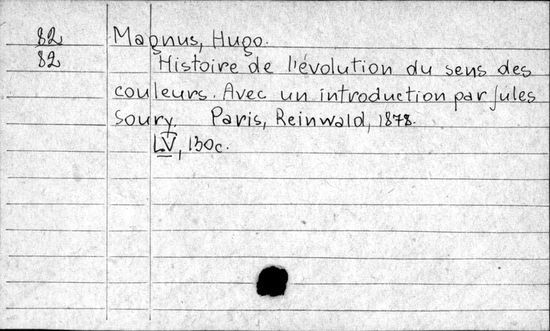 82 Magnus, Hugo.
82 Histoire de l'évolution du sens des
couleurs. Avec un introduction par Jules
Soury. Paris, Reinwald, 1878.
LV, 130c.